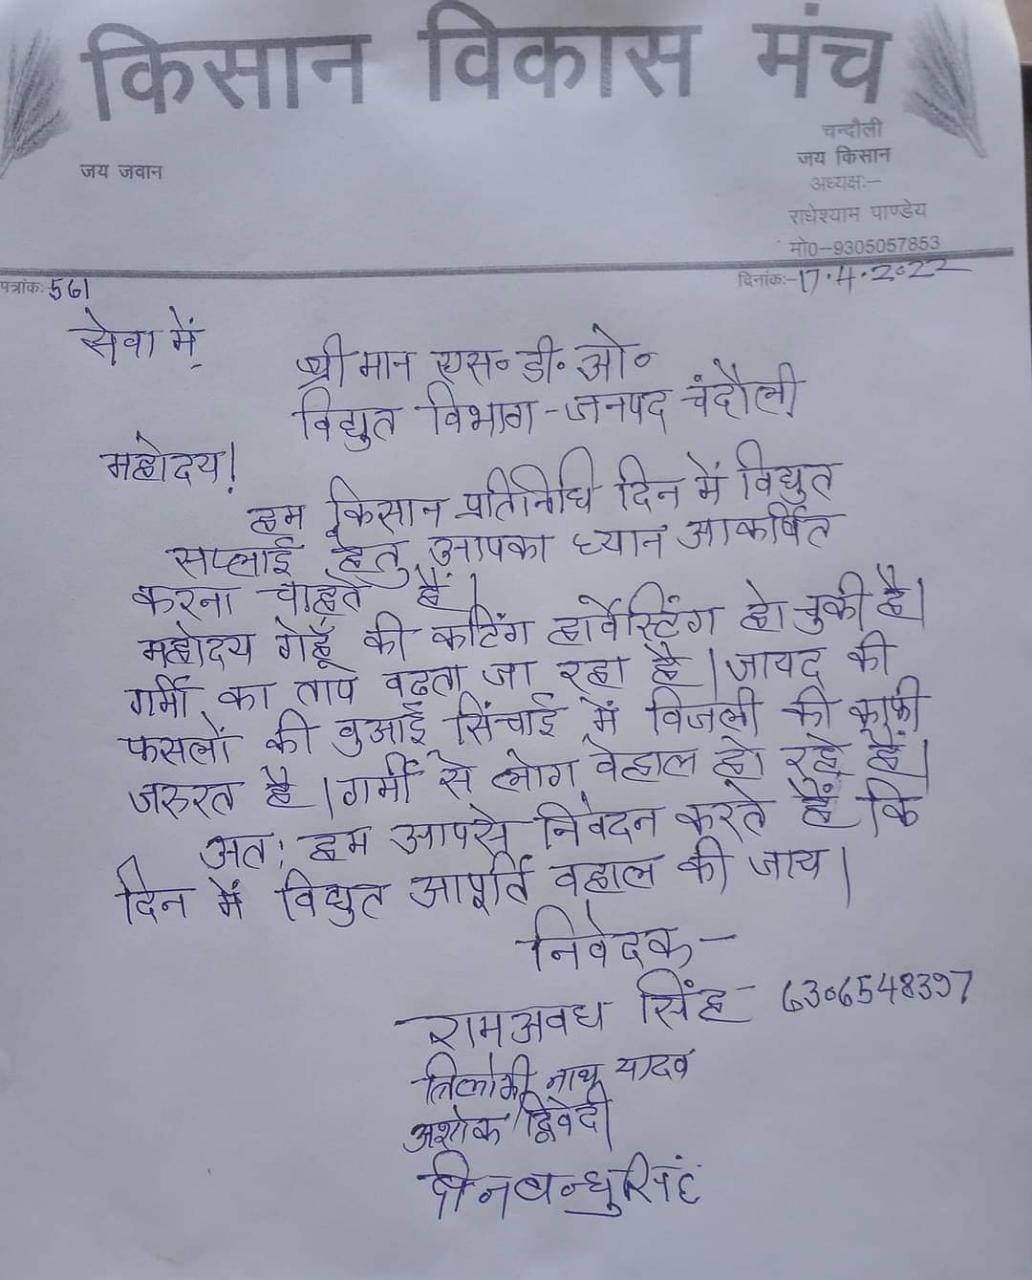 किसान विकास मंच
चन्दौली
जय जवान
जय किसान
अध्यक्षः-
राधेश्याम पाण्डेय
मो0-9305057853
पत्रांकः 561
दिनांकः- 17.4.2022
सेवा में
श्रीमान एस॰ डी॰ ओ॰
विद्युत विभाग - जनपद चंदौली
महोदय!
हम किसान प्रतिनिधि दिन में विद्युत
सप्लाई हेतु आपका ध्यान आकर्षित
करना चाहते हैं।
महोदय गेहूँ की कटिंग हार्वेस्टिंग हो चुकी है।
गर्मी का ताप वढता जा रहा है। जायद की
फसलों की वुआई सिंचाई में विजली की काफी
जरुरत है। गर्मी से लोग वेहाल हो रहे हैं।
अतः हम आपसे निवेदन करते हैं कि
दिन में विद्युत आपूर्ति वहाल की जाय।
निवेदक-
रामअवध सिंह - 6306548397
तिलोकी नाथ यादव
अशोक द्विवेदी
दीनबन्धु सिंह